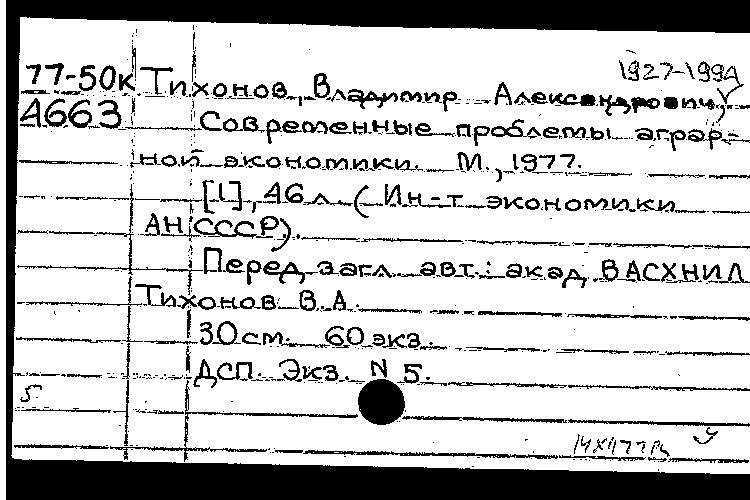 1927-1994
77-50к Тихонов, Владимир Александрович,
А663 Современные проблемы аграр-
ной экономики. М., 1977.
[1], 46 л. (Ин-т экономики
АН СССР).
Перед загл. авт.: акад. ВАСХНИЛ
Тихонов В.А.
30 см. 60 экз.
ДСП. Экз. N 5.
5